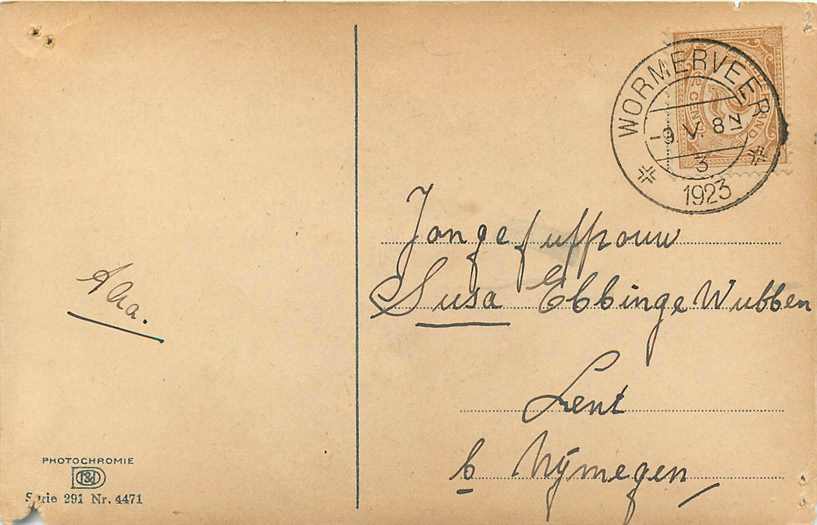 WORMERVEER
-9.V. 8N
3
1923
CENT
Jongejuffrouw
Susa Ebbinge Wubben
Lent
b Nijmegen
Aha.
PHOTOCHROMIE
Serie 291 Nr. 4471